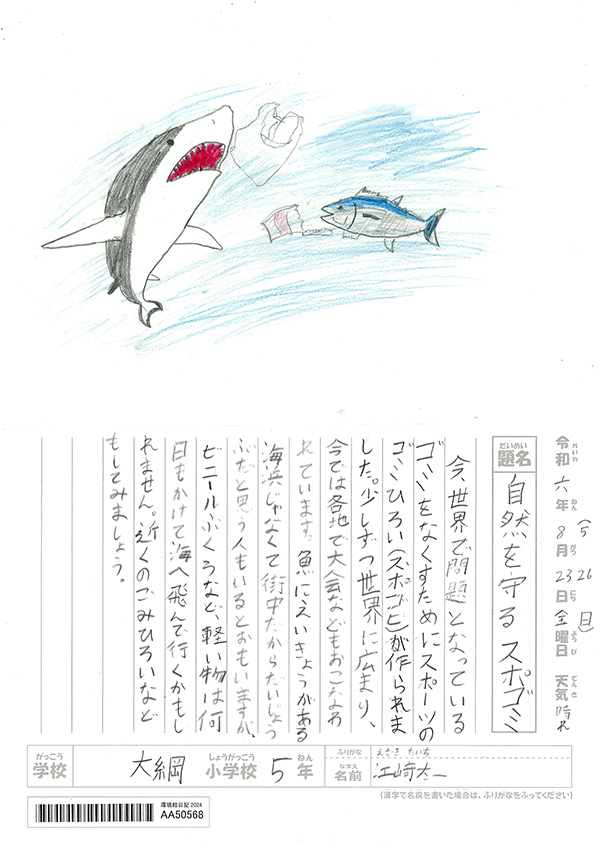 令和六年8月23(5 26日)日金曜日 天気 晴れ
れいわ ねん がつ にち ようび てんき
だいめい
題名 自然を守る スポゴミ
今、世界で問題となっている
ゴミをなくすためにスポーツの
ゴミひろい(スポゴミ)が作られま
した。少しずつ世界に広まり、
今では各地で大会などもおこなわ
れています。魚にえいきょうがある
海浜じゃなくて街中だからだいじょう
ぶだと思う人もいるとおもいますが、
ビニールぶくろなど、軽い物は何
日もかけて海へ飛んで行くかもし
れません。近くのごみひろいなど
もしてみましょう。
がっこう しょうがっこう ねん
学校 大綱 小学校 5年
ふりがな えさき たいち
なまえ
名前 江崎太一
(漢字で名前を書いた場合は、ふりがなをふってください)
環境絵日記 2024
AA50568